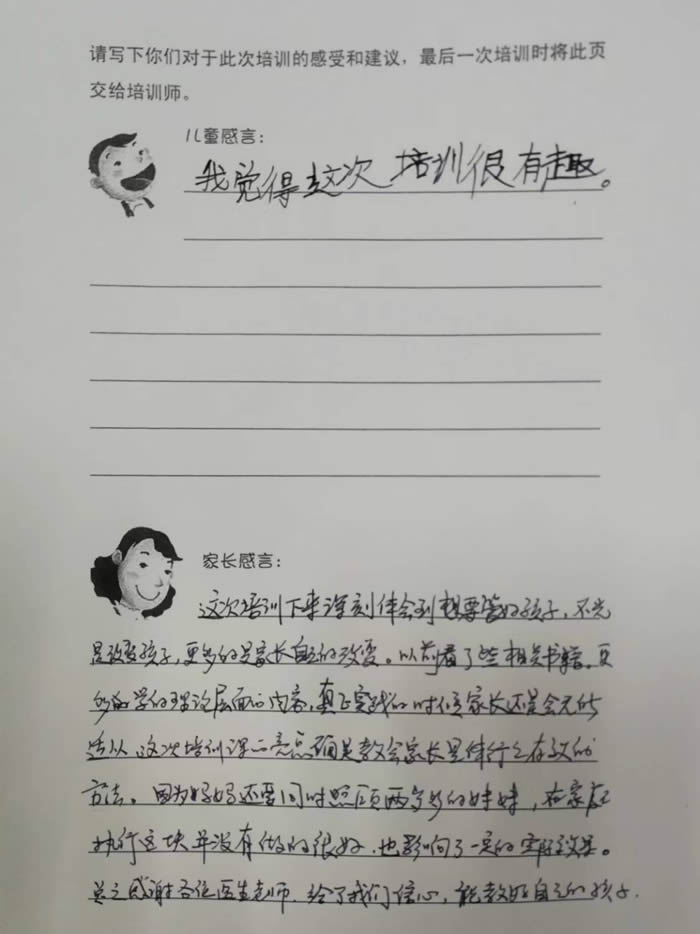 请写下你们对于此次培训的感受和建议，最后一次培训时将此页
交给培训师。
儿童感言：
我觉得这次 培训很有趣。
家长感言：
这次培训下来深刻体会到想要管好孩子，不光
是改变孩子，更多的是家长自己的改变。以前看了些相关书籍。更
多的学的理论层面的内容，真正实践的时候家长还是会无所
适从。这次培训课的亮点确是教会家长具体行之有效的
方法。因为妈妈还要同时照顾两岁多的妹妹，在家庭
执行这块并没有做的很好，也影响了一定的实际效果。
总之感谢各位医生老师，给了我们信心，能教好自己的孩子.